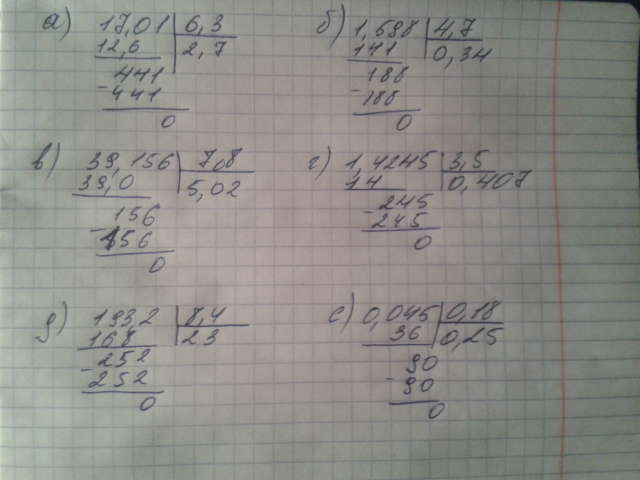 а) 17,01 6,3 б) 1,598 4,7
12,6 2,7 141 0,34
441 188
- 441 - 188
0 0
в) 39,156 7,8 г) 1,4245 3,5
39,0 5,02 14 0,407
- 156 - 245
156 245
0 0
д) 1932 8,4 е) 0,045 0,18
168 23 36 0,25
- 252 90
252 - 90
0 0